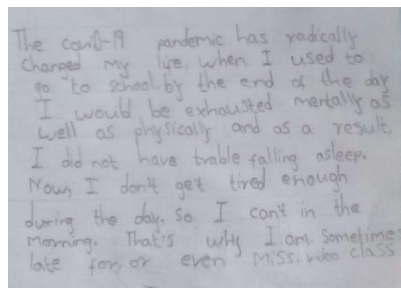 The covid-19 pandemic has radically
changed my life. when I used to
go to school, by the end of the day
I would be exhausted mentally as
well as physically and as a result,
I did not have trable falling asleep.
Now, I don't get tired enough
during the day. So I can't in the
morning. That's why I am sometime
late for, or even miss, video class